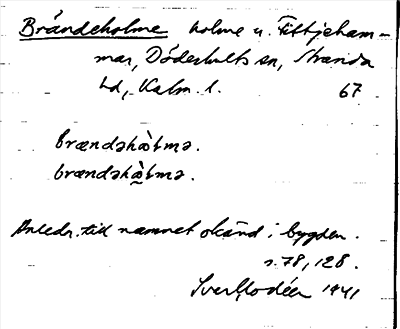 Brändeholme holme u. Fittjeham-
mar, Döderhults sn, Stranda
hd, Kalm. l. 67
brændəhòlmə.
brændəhòlmə.
Anledn. till namnet okänd i bygden.
s. 78, 128.
1941